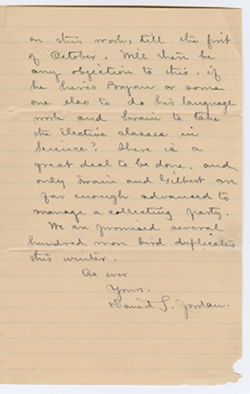 on this work, till the first
of October. Will there be
any objection to this, if
he hires Bryan or some
one else to do his language
work and Swain to take
the Elective classes in
Science? There is a
great deal to be done, and
only Swain and Gilbert are
far enough advanced to
manage a collecting party.
We are promised several
hundred more bird duplicates
this winter.
As ever
Yours.
David S. Jordan.